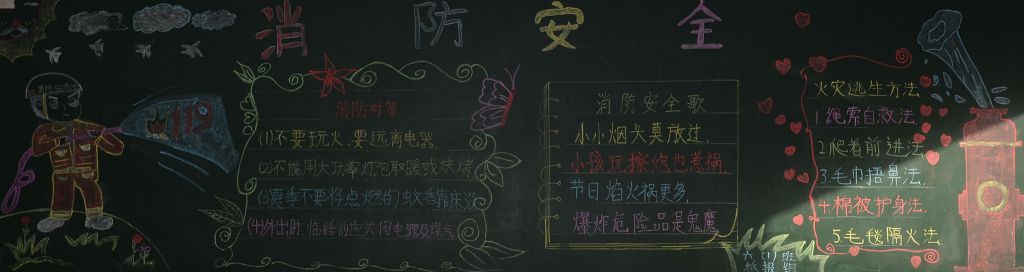 消防安全
消防对策
(1)不要玩火,要远离电器.
(2)不能用大功率灯泡取暖或烘烤
(3)夏季不要将点燃的蚊香靠床沿
(4)外出前.临睡前应关闭电源及煤气
消防安全歌
小小烟头莫放过,
小孩玩擦炮也惹祸
节日焰火祸更多,
爆炸危险品是鬼魔
火灾逃生方法
1.绳索自救法
2.爬着前进法
3.毛巾捂鼻法.
4.棉被护身法.
5毛毯隔火法
119
六(1)班